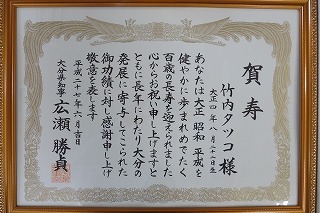 賀寿
竹内タツコ様
大正四年八月二十八日生
あなたは大正 昭和 平成を
健やかに歩まれめでたく
百歳の長寿を迎えられました
心からお祝い申し上げますと
ともに長年にわたり大分の
発展に寄与してこられた
御功績に対し感謝申し上げ
敬意を表します
平成二十七年六月吉日
大分県知事 広瀬勝貞